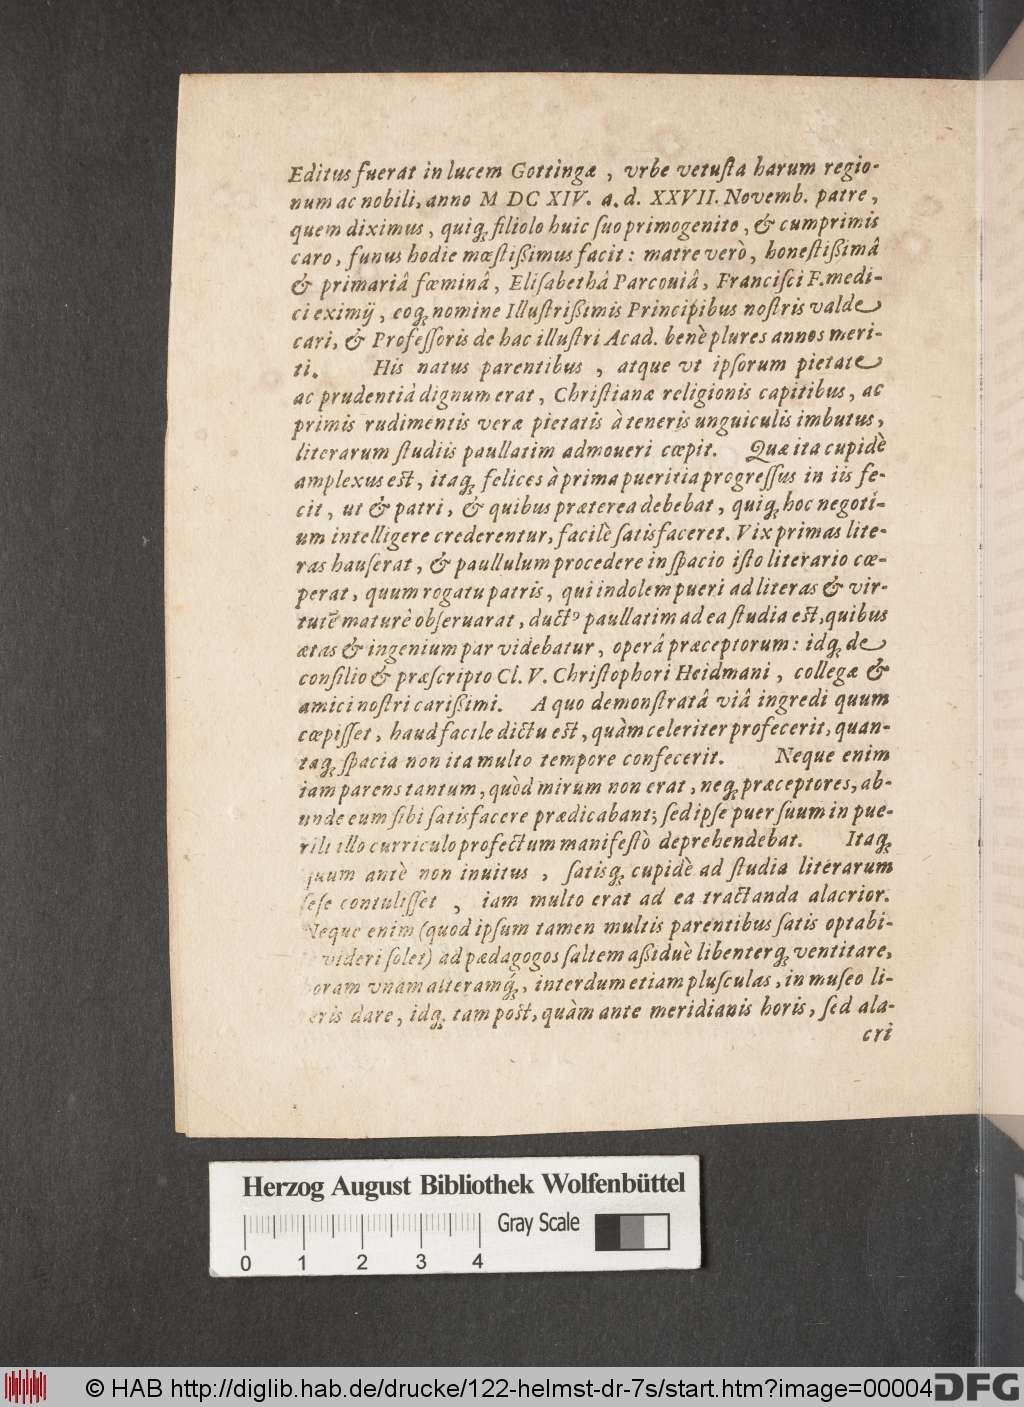 Editus fuerat in lucem Gottingæ , vrbe vetuſta harum regio-
num ac nobili, anno M DC XIV. a. d. XXVII. Novemb. patre ,
quem diximus , quiq; filiolo huic ſuo primogenito , & cumprimis
caro , funus hodie mœſtißimus facit : matre verò , honeſtißimâ
& primariâ fœminâ , Eliſabethâ Parcouiâ , Franciſci F. medi-
ci eximij , eoq; nomine Illuſtrißimis Principibus noſtris valde
cari, & Profeſſoris de hac illuſtri Acad. benè plures annos meri-
ti. His natus parentibus , atque vt ipſorum pietate
ac prudentiâ dignum erat , Chriſtianæ religionis capitibus , ac
primis rudimentis veræ pietatis à teneris unguiculis imbutus ,
literarum ſtudiis paullatim admoueri cœpit. Quæ ita cupidè
amplexus eſt , itaq; felices à prima pueritia progreſſus in iis fe-
cit , ut & patri , & quibus præterea debebat , quiq; hoc negoti-
um intelligere crederentur, facilè ſatisfaceret. Vix primas lite-
ras hauſerat , & paullulum procedere in ſpacio iſto literario cœ-
perat, quum rogatu patris, qui indolem pueri ad literas & vir-
tutē maturè obſeruarat, ductꝰ paullatim ad ea ſtudia eſt, quibus
ætas & ingenium par videbatur, operâ præceptorum : idq; de
conſilio & præſcripto Cl. V. Chriſtophori Heidmani , collegæ &
amici noſtri carißimi. A quo demonſtratâ viâ ingredi quum
cœpiſſet , haud facile dictu eſt , quàm celeriter profecerit, quan-
taq; ſpacia non ita multo tempore confecerit. Neque enim
iam parens tantum, quòd mirum non erat , neq; præceptores, ab-
unde eum ſibi ſatisfacere prædicabant; ſed ipſe puer ſuum in pue-
rili illo curriculo profectum manifeſtò deprehendebat. Itaq;
quum antè non inuitus , ſatisq; cupidè ad ſtudia literarum
ſeſe contuliſſet , iam multo erat ad ea tractanda alacrior.
Neque enim (quod ipſum tamen multis parentibus ſatis optabi-
videri ſolet) ad pædagogos ſaltem aßiduè libenterq; ventitare,
horam vnam alteramq́;, interdum etiam pluſculas , in muſeo li-
eris dare, idq; tam poſt, quàm ante meridianis horis, ſed ala-
cri
Herzog August Bibliothek Wolfenbüttel
Gray Scale
0 1 2 3 4
© HAB http://diglib.hab.de/drucke/122-helmst-dr-7s/start.htm?image=00004
DFG